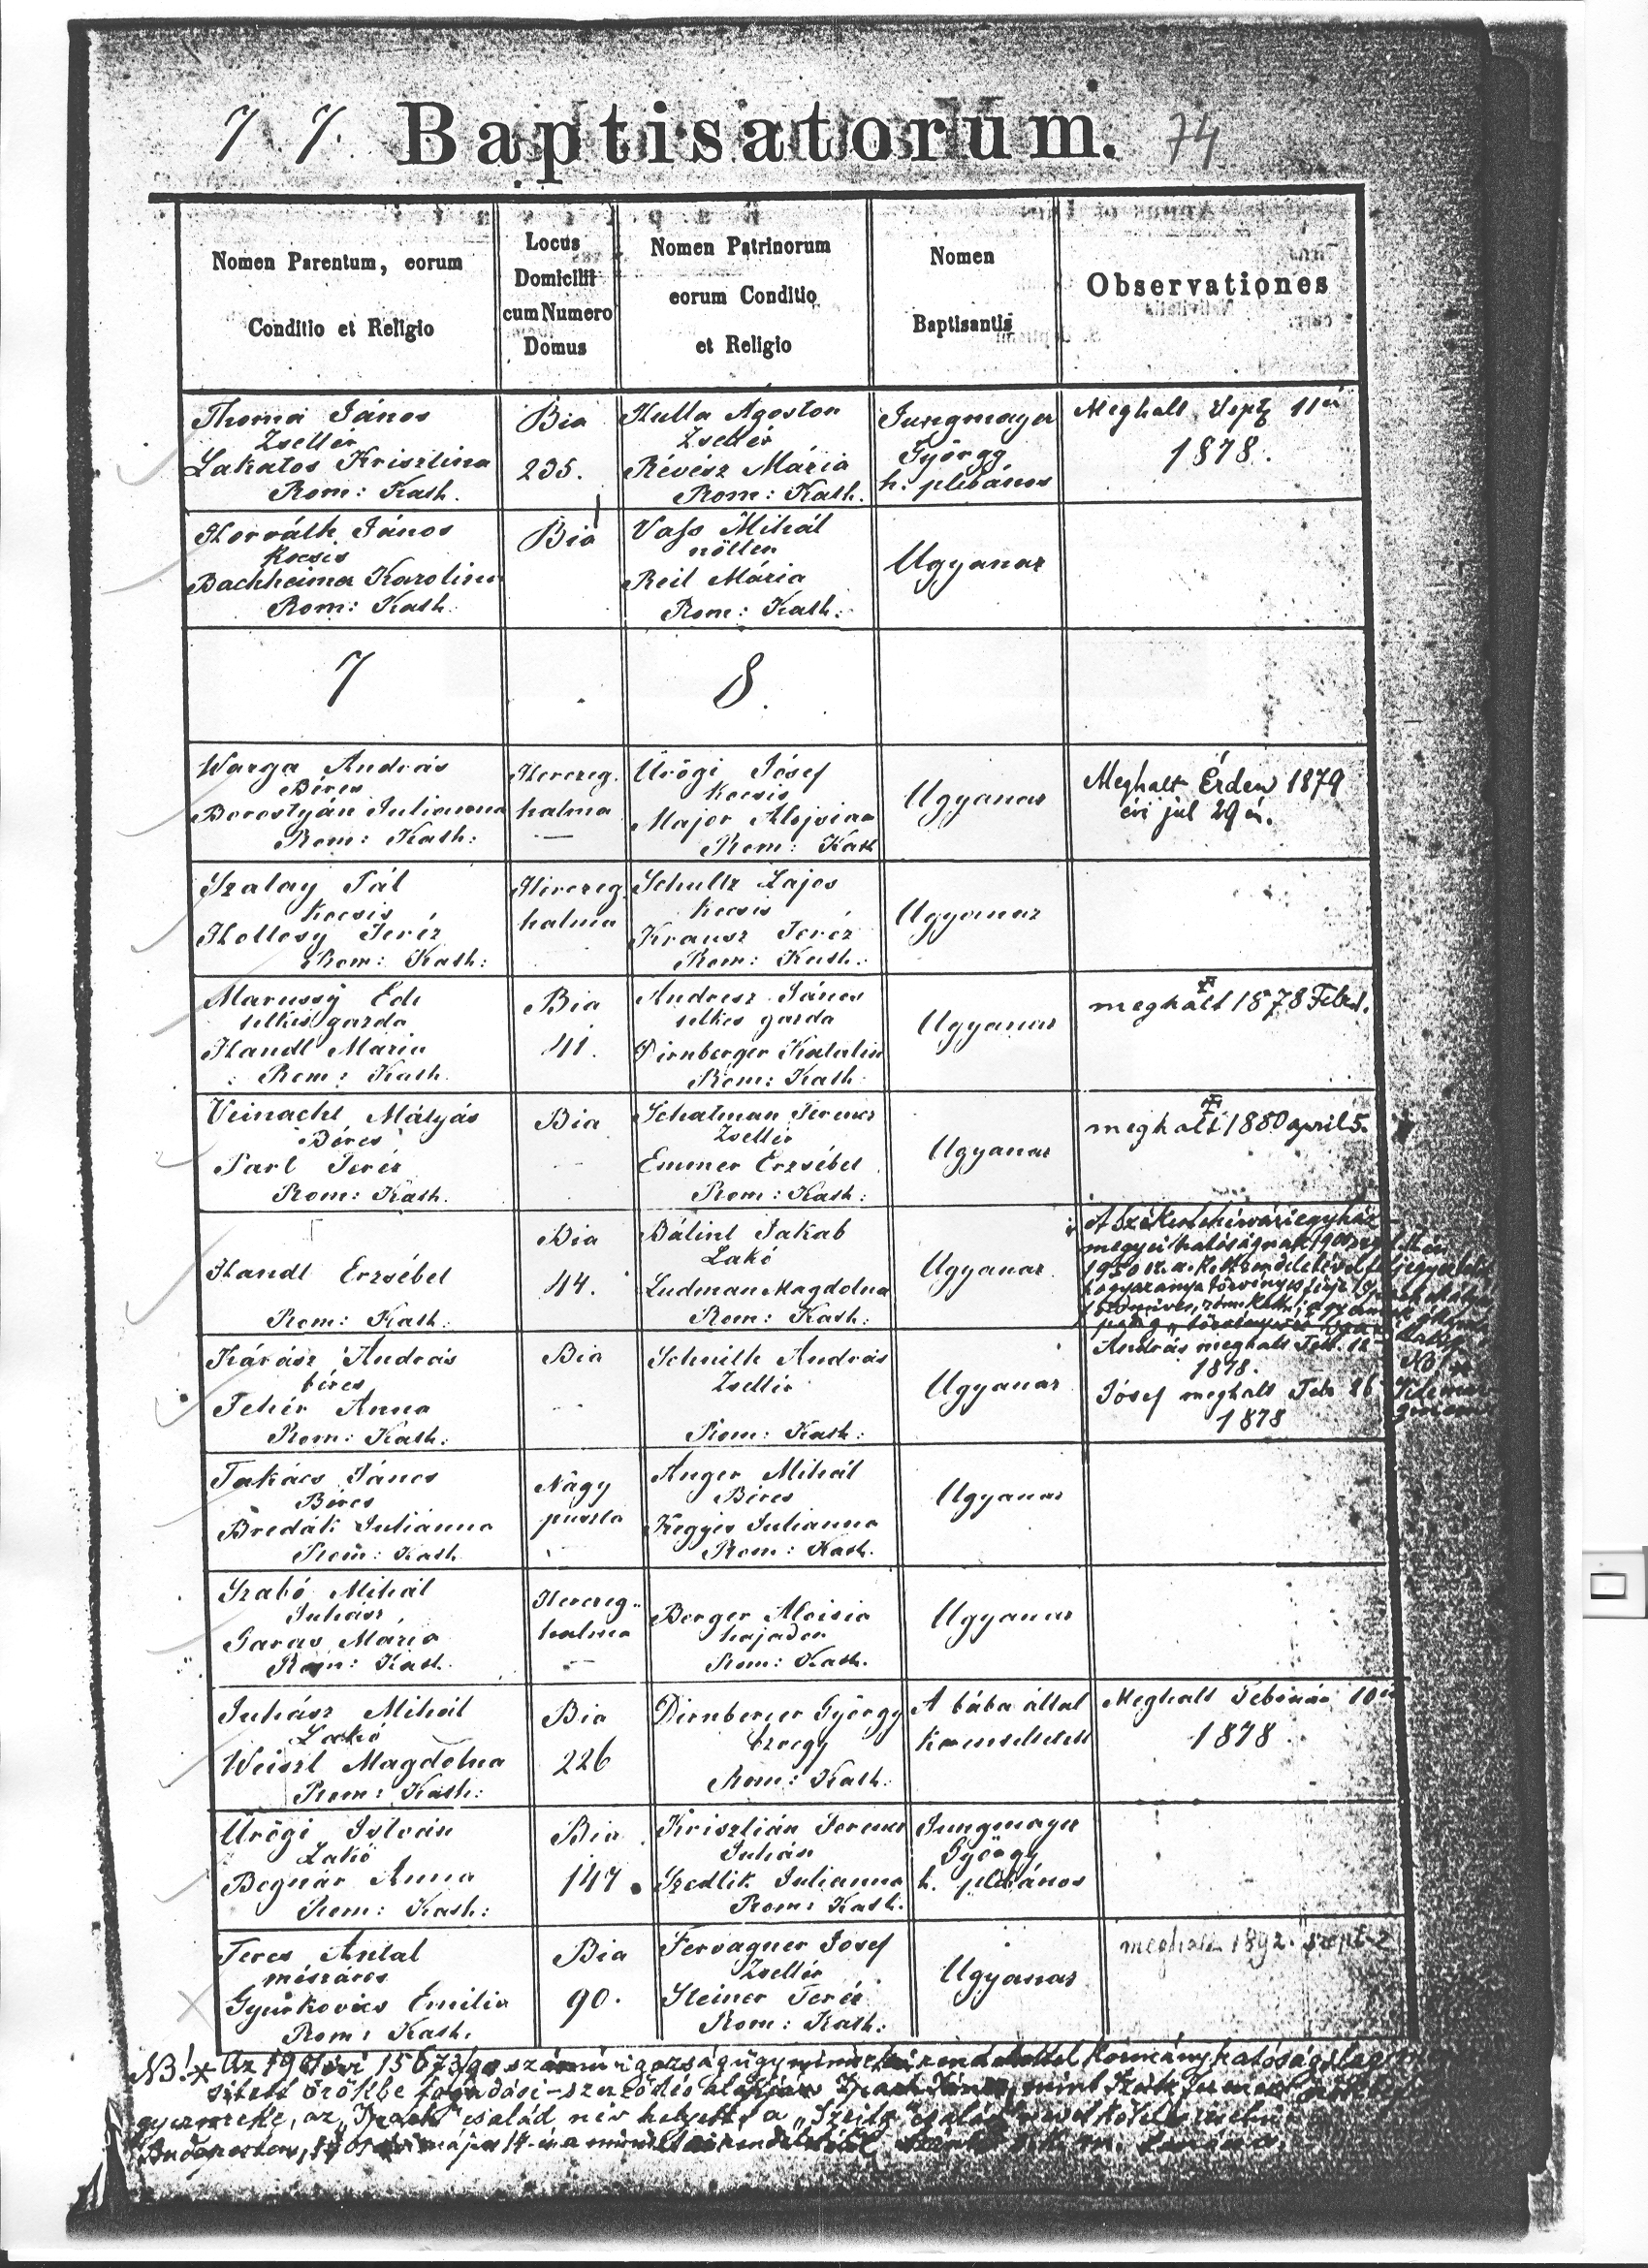 7 7. Baptisatorum. 74
Nomen Parentum, eorum
Conditio et Religio
Locus
Domicilii
cum Numero
Domus
Nomen Patrinorum
eorum Conditio
et Religio
Nomen
Baptisantis
Observationes
Thoma János
Zsellér
Lakatos Krisztina
Rom: Kath.
Bia
235.
Hulla Ágoston
Zsellér
Révész Mária
Rom: Kath.
Jungmayer
György
h. plébános
Meghalt Sept 11én
1878.
Horváth János
Kocsis
Bachheimer Karolina
Rom: Kath.
Bia
Vass Mihál
nőtlen
Reil Mária
Rom: Kath:
Ugyanaz
7
8.
Warga András
Béres
Borostyán Julianna
Rom: Kath:
Herczeg
halma
Ürögi Jósef
Kocsis
Major Alojsia
Rom: Kath
Ugyanaz
Meghalt Érden 1879
évi júl 29 én.
Szalay Pál
Kocsis
Hollosy Teréz
Rom: Kath:
Herczeg
halma
Schultz Lajos
Kocsis
Krausz Teréz
Rom: Kath:
Ugyanaz
Marussy Ede
telkes gazda
Handl Mária
Rom: Kath.
Bia
41.
Andresz János
telkes gazda
Dirnberger Katalin
Rom: Kath
Ugyanaz
meghalt 1878 Febr 1.
Veinachl Mátyás
Béres
Parl Teréz
Rom: Kath.
Bia
Schatman Ferencz
Zsellér
Emmer Erzsébet
Rom: Kath:
Ugyanaz
meghalt 1880 april 5.
Handl Erzsébet
Rom: Kath:
Bia
44.
Bálint Jakab
Lakó
Ludman Magdolna
Rom: Kath:
Ugyanaz
A Székesfehérvári egyház
megyei hatóságnak
Kárász András
béres
Fehér Anna
Rom: Kath:
Bia
Schnilh András
Zsellér
Rom: Kath:
Ugyanaz
András meghalt Febr. 12
1878.
Jósef meghalt Feb 26
1878
Takács János
Béres
Bredák Julianna
Rom: Kath
Nagy
puszta
Anger Mihál
Béres
Kegyes Julianna
Rom: Kath.
Ugyanaz
Szabó Mihál
Juhász
Garas Mária
Rom: Kath.
Herczeg
halma
Berger Aloisia
hajadon
Rom: Kath.
Ugyanaz
Juhász Mihál
Lakó
Weiszl Magdolna
Rom: Kath:
Bia
226
Dirnberger György
özvegy
Rom: Kath:
A bába által
kereszteltetett
Meghalt Február 10én
1878
Ürögi István
Lakó
Bognár Anna
Rom: Kath:
Bia
147
Krisztián Ferencz
Juhász
Szedlik Julianna
Rom: Kath.
Jungmayer
György
h. plébános
Teres Antal
mészáros
Gyurkovics Emilia
Rom: Kath.
Bia
90.
Fervagner Josef
Zsellér
Steiner Teréz
Rom: Kath:
Ugyanaz
meghalt 1892. szept 2
NB! * Az
örökbe fogadási-szerződés alapján
gyermeke, az család név helyett a